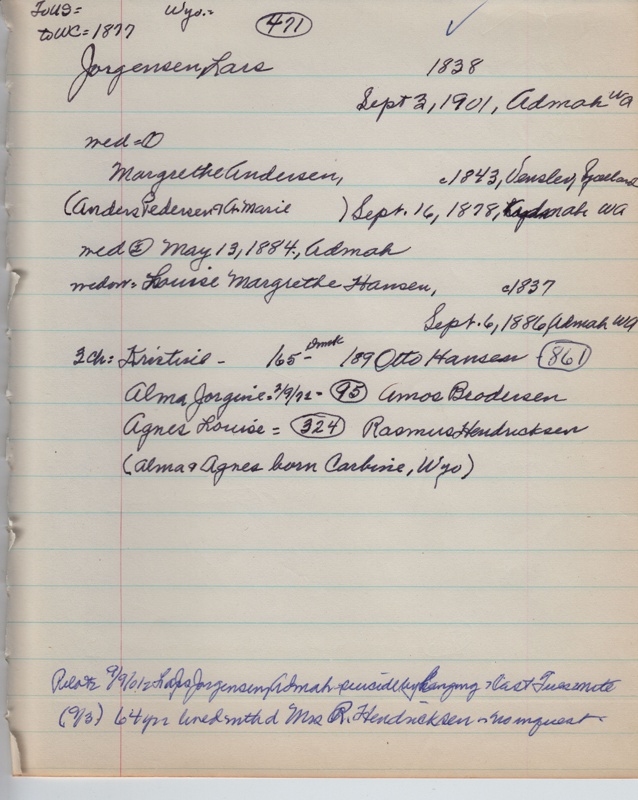 To US= Wyo.=
to WC= 1877 471
Jorgensen, Lars 1838
Sept 3, 1901, Admah WA
med=①
Margrethe Andersen, c1843,
(Anders Pedersen & A. Marie ) Sept. 16, 1878, Admah WA
med ② May 13, 1884, Admah
widow= Louise Margrethe Hansen, c1837
Sept. 6, 1886 Admah WA
3 ch: Kristine - 165- Dmk 189 Otto Hansen - 861
Alma Jorgine= 3/9/72- 95 Amos Brodersen
Agnes Louise = 324 Rasmus Hendricksen
(Alma & Agnes born Carbine, Wyo)
Pilot= 9/9/01= Lars Jorgensen, Admah - suicide by hanging = last Tues nite
(9/3) 64 yrs lived with d Mrs R. Hendricksen - no inquest.